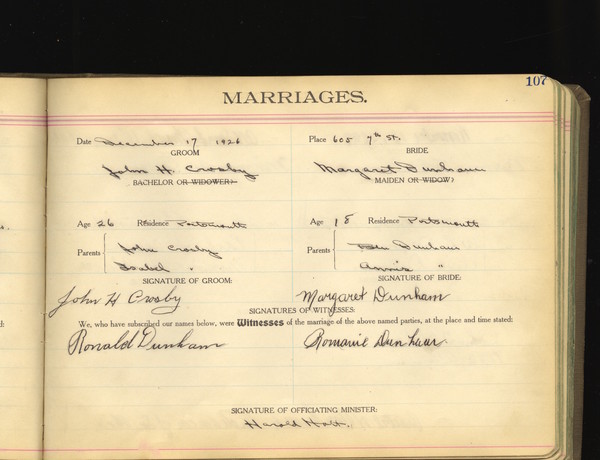 107
MARRIAGES.
Date December 17 1926 Place 605 7th St.
GROOM BRIDE
John H. Crosby Margaret Dunham
BACHELOR OR WIDOWER) MAIDEN OR WIDOW)
Age 26 Residence Portsmouth Age 18 Residence Portsmouth
Parents { John Crosby Parents { Ben Dunham
Isabel " Annie "
SIGNATURE OF GROOM: SIGNATURE OF BRIDE:
John H Crosby Margaret Dunham
SIGNATURES OF WITNESSES:
We, who have subscribed our names below, were Witnesses of the marriage of the above named parties, at the place and time stated:
Ronald Dunham Dunham
SIGNATURE OF OFFICIATING MINISTER:
Harold Holt.